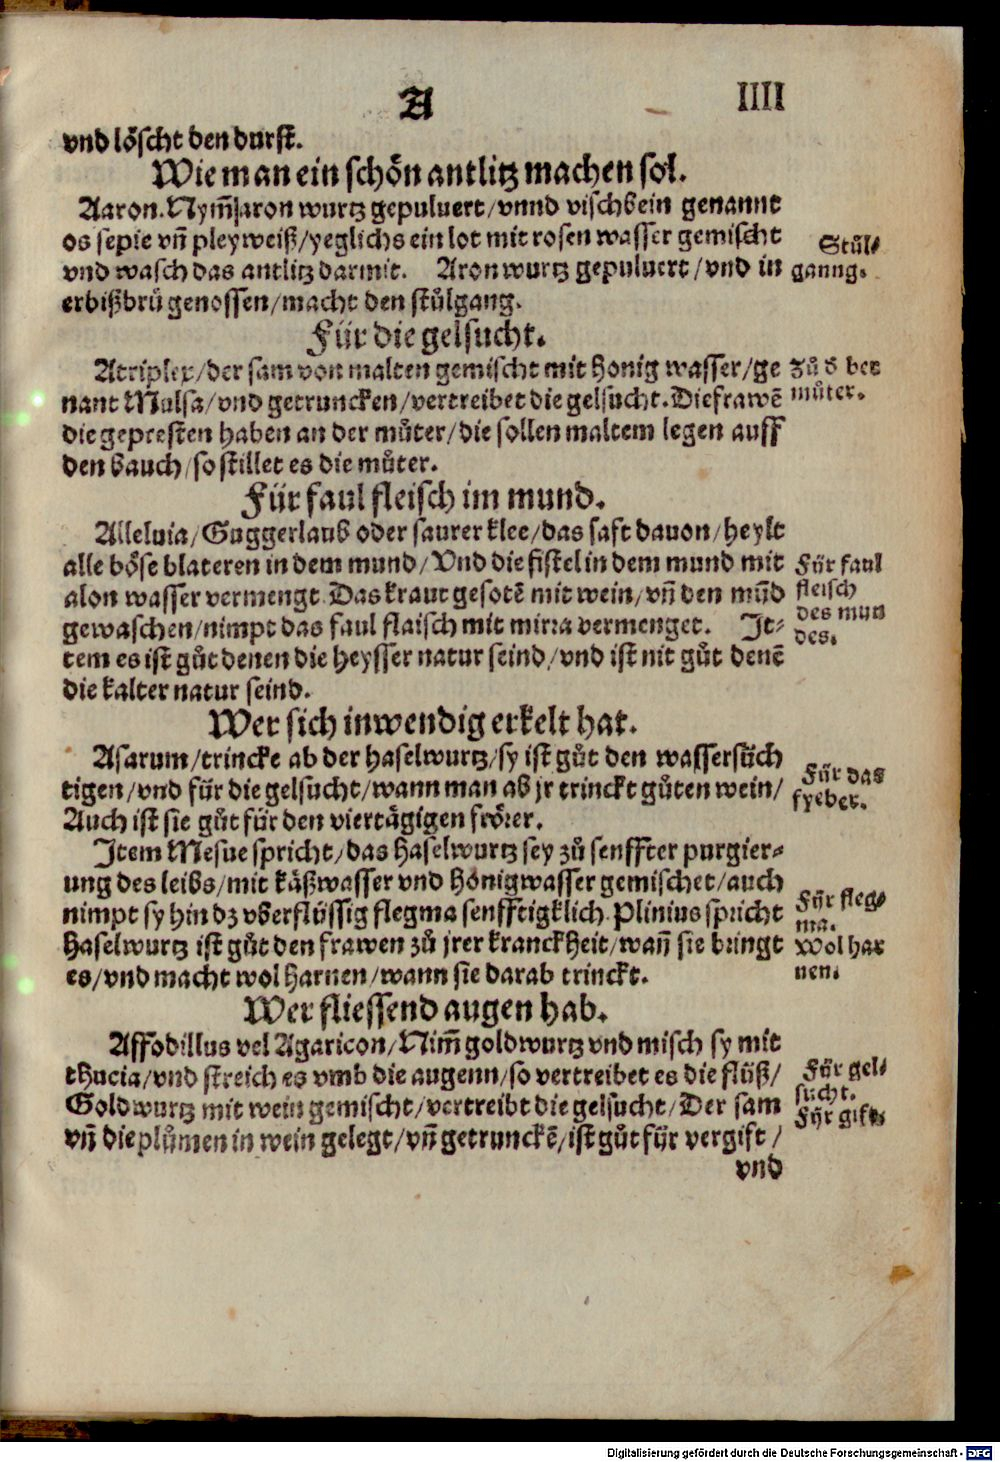 A
IIII
vnd löscht den durst.
Wie man ein schön antlitz machen sol.
Aaron. Nym̃ jaron wurtz gepuluert/vnnd vischbein genannt
os sepie vñ pleyweiß/yeglichs ein lot mit rosen wasser gemischt
vnd wasch das antlitz darmit. Aron wurtz gepuluert/vnd in
erbißbrů genossen/macht den stůlgang.
Stůl-
ganng.
Für die gelsucht.
Atriplex/der sam von malten gemischt mit honig wasser/ge
nant Mulsa/vnd getruncken/vertreibet die gelsucht. Die frawē
die gepresten haben an der můter/die sollen maltem legen auff
den bauch/so stillet es die můter.
Zů d ber
můter.
Für faul fleisch im mund.
Alleluia/Guggerlaub oder saurer klee/das saft dauon/heylt
alle böse blateren in dem mund/Vnd die fistel in dem mund mit
alon wasser vermengt. Das kraut gesotē mit wein/vñ den mūd
gewaschen/nimpt das faul flaisch mit mirra vermenget. It-
tem es ist gůt denen die heysser natur seind/vnd ist nit gůt denē
die kalter natur seind.
Für faul
fleisch
des mun
des.
Wer sich inwendig erkelt hat.
Asarum/trincke ab der haselwurtz/sy ist gůt den wassersüch
tigen/vnd für die gelsucht/wann man ab jr trinckt gůten wein/
Auch ist sie gůt für den viertägigen frörer.
Für das
fyeber.
Item Mesue spricht/das haselwurtz sey zů senffter purgier-
ung des leibs/mit käßwasser vnd hönigwasser gemischet/auch
nimpt sy hin dz vberflüssig flegma senfftigklich. Plinius spricht
haselwurtz ist gůt den frawen zů jrer kranckheit/wañ sie bringt
es/vnd macht wol harnen/wann sie darab trinckt.
Für fleg-
ma.
Wol har
nen.
Wer fliessend augen hab.
Affodillus vel Agaricon/Nim̃ goldwurtz vnd misch sy mit
thucia/vnd streich es vmb die augenn/so vertreibet es die flüß/
Goldwurtz mit wein gemischt/vertreibt die gelsucht/Der sam
vñ die plůmen in wein gelegt/vñ getrunckē/ist gůt für vergift/
Für gel-
sucht.
Für gift.
vnd
Digitalisierung gefördert durch die Deutsche Forschungsgemeinschaft - DFG